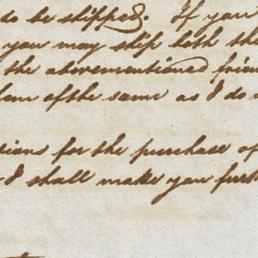 to be shipped. If you
you may ship both the
the abovementioned
of the same as I do
for the purchase of
I shall make you furth